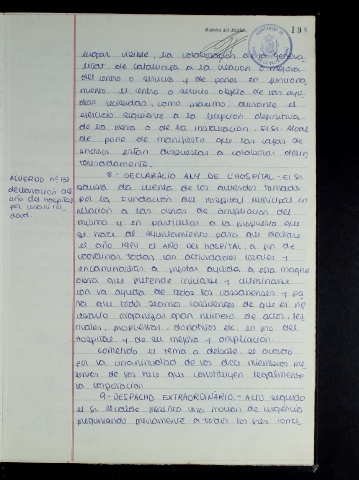 Rúbrica del Alcalde,
198
lugar visible, la colaboración de la Genera-
litat de Catalunya a la creación o mejora
del centro o servicio y de poner en funciona-
miento el centro o servicio objeto de las ayu-
das recibidas, como máximo durante el
ejercicio siguiente a la recepción definitiva
de la obra o de la instalación. El Sr. Alcalde
pone de manifiesto que las cajas de
ahorros están dispuestas a colaborar
ACUERDO nº 132
declaración del
año del hospital
por unanimi-
dad.
8.- DECLARACIÓ ANY DE L'HOSPITAL.- El Sr.
da cuenta de los acuerdos tomados
por la Fundación del Hospital Municipal en
relación a las obras de ampliación del
mismo y en particular a la propuesta que
se hace al Ayuntamiento para que declare
el año 1984 EL AÑO DEL HOSPITAL, a fin de
coordinar todas las actividades locales y
encaminarlas a prestar ayuda a esta magna
obra que pretende iniciarse y culminarse
con la ayuda de todos los
ya que todos somos conscientes de que es ne-
cesario organizar gran número de actos, fes-
tivales, propuestas, donativos etc. en pro del
Hospital y de su mejora y ampliación.
Sometido el tema a debate, se acordó
por la unanimidad de los diez miembros pre-
sentes de los trece que constituyen legalmente
la corporación.
9.- DESPACHO EXTRAORDINARIO.- Acto seguido
el Sr. Alcalde presenta una moción de urgencia
preguntando previamente a todos los Sres. conce-